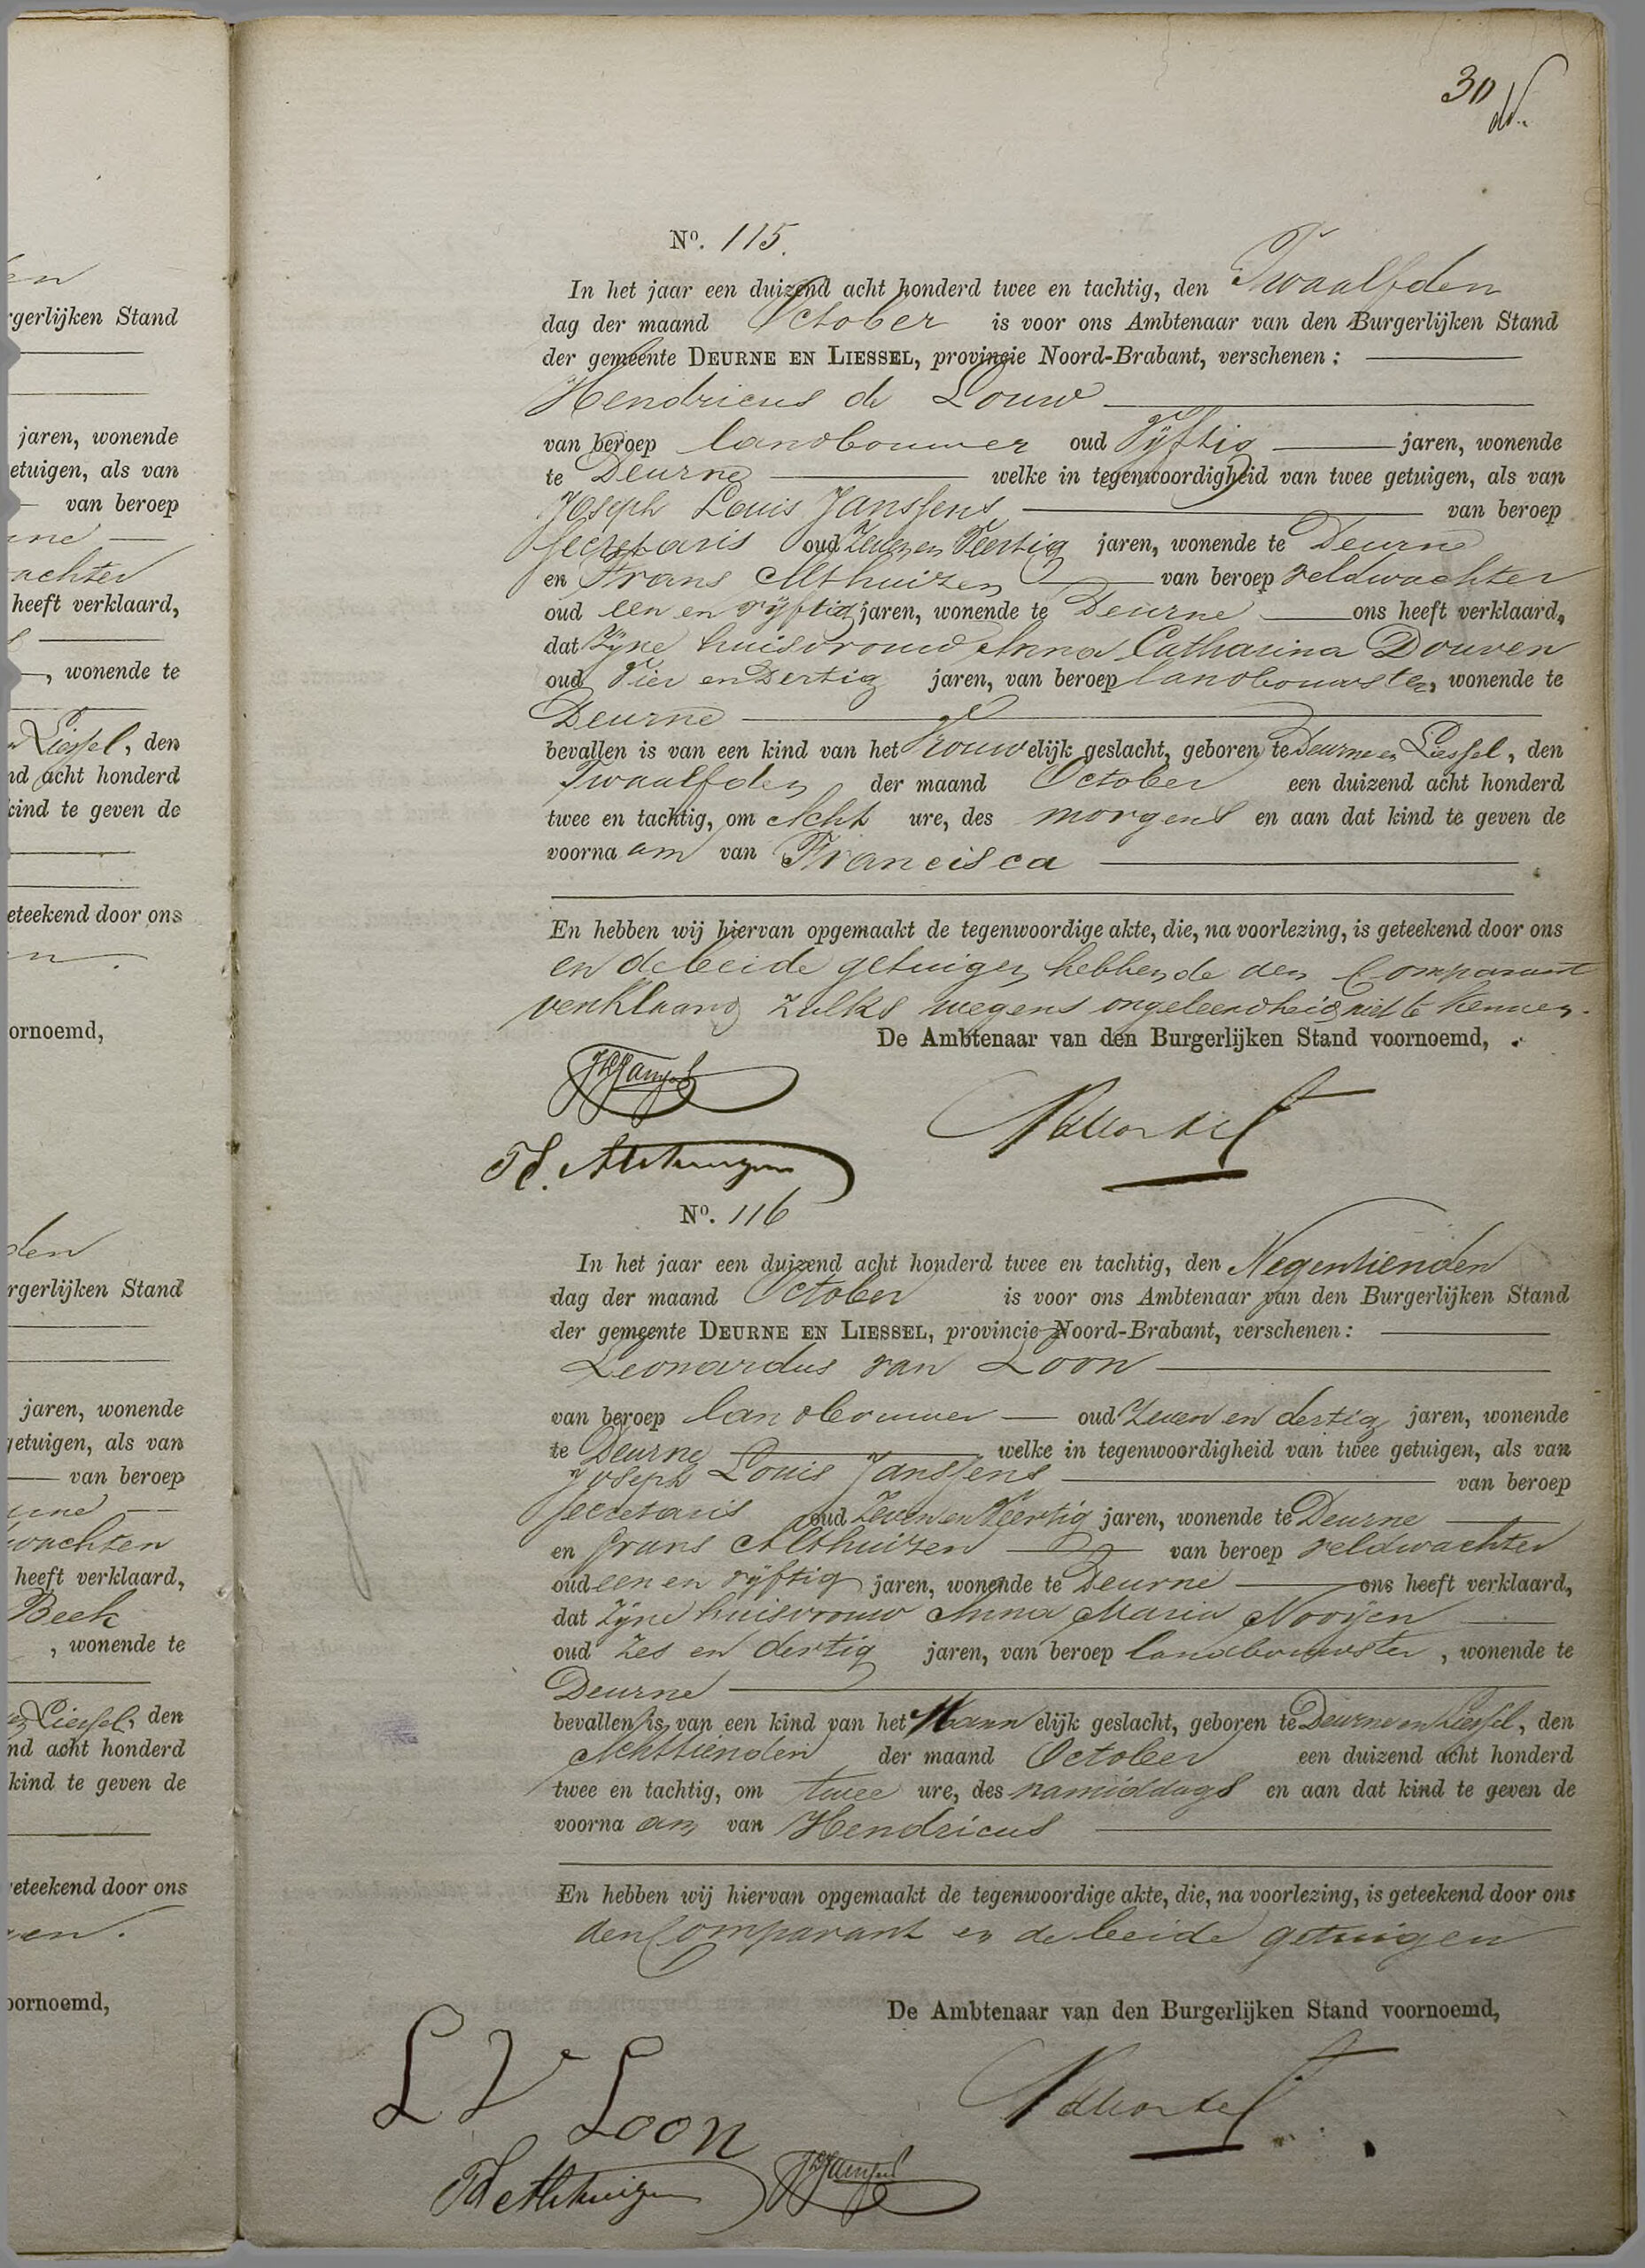 30
No. 115.
In het jaar een duizend acht honderd twee en tachtig, den Twaalfden
dag der maand October is voor ons Ambtenaar van den Burgerlijken Stand
der gemeente DEURNE EN LIESSEL, provincie Noord-Brabant, verschenen :
Hendricus de Louw
van beroep landbouwer oud Vijftig jaren, wonende
te Deurne welke in tegenwoordigheid van twee getuigen, als van
Joseph Louis Janssens van beroep
Secretaris oud Zeven en Veertig jaren, wonende te Deurne
en Frans Althuizen van beroep veldwachter
oud een en vijftig jaren, wonende te Deurne ons heeft verklaard,
dat Zijne huisvrouw Anna Catharina Douven
oud Vier en Dertig jaren, van beroep landbouwster, wonende te
Deurne
bevallen is van een kind van het Vrouwelijk geslacht, geboren te Deurne en Liessel, den
Twaalfden der maand October een duizend acht honderd
twee en tachtig, om Acht ure, des morgens en aan dat kind te geven de
voornaam van Francisca
En hebben wij hiervan opgemaakt de tegenwoordige akte, die, na voorlezing, is geteekend door ons
en de beide getuigen, hebbende den Comparant
verklaard zulks wegens ongeleerdheid niet te kennen.
De Ambtenaar van den Burgerlijken Stand voornoemd,
No. 116
In het jaar een duizend acht honderd twee en tachtig, den Negentienden
dag der maand October is voor ons Ambtenaar van den Burgerlijken Stand
der gemeente DEURNE EN LIESSEL, provincie Noord-Brabant, verschenen :
Leonardus van Loon
van beroep landbouwer oud Zeven en dertig jaren, wonende
te Deurne welke in tegenwoordigheid van twee getuigen, als van
Joseph Louis Janssens van beroep
Secretaris oud Zeven en Veertig jaren, wonende te Deurne
en Frans Althuizen van beroep veldwachter
oud een en vijftig jaren, wonende te Deurne ons heeft verklaard,
dat Zijne huisvrouw Anna Maria Nooijen
oud Zes en dertig jaren, van beroep landbouwster, wonende te
Deurne
bevallen is van een kind van het Mannelijk geslacht, geboren te Deurne en Liessel, den
Achttienden der maand October een duizend acht honderd
twee en tachtig, om twee ure, des namiddags en aan dat kind te geven de
voornaam van Hendricus
En hebben wij hiervan opgemaakt de tegenwoordige akte, die, na voorlezing, is geteekend door ons
den Comparant en de beide getuigen
De Ambtenaar van den Burgerlijken Stand voornoemd,
L V Loon